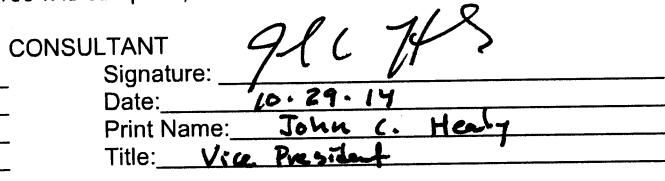 CONSULTANT
Signature:
Date: 10.29.14
Print Name: John C. Healy
Title: Vice President